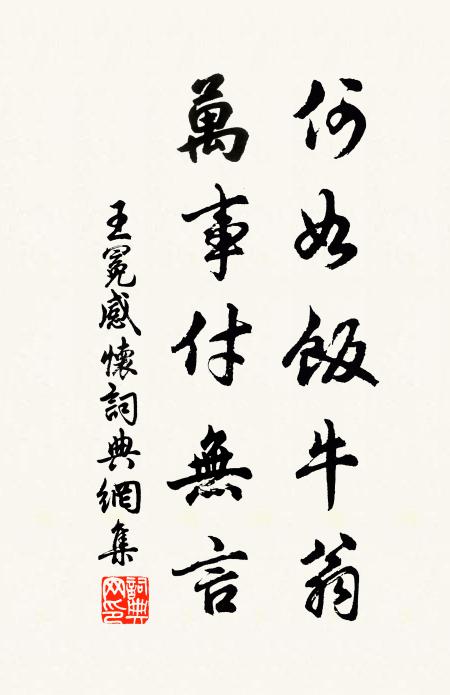 何如飯牛翁
萬事付無言
王冕感懷詞典網集
詞典
网印